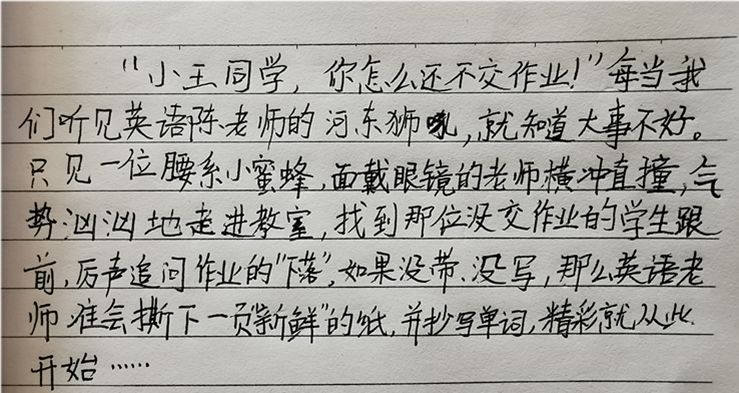 “小王同学，你怎么还不交作业！”每当我
们听见英语陈老师的河东狮吼，就知道大事不好。
只见一位腰系小蜜蜂，面戴眼镜的老师横冲直撞，气
势汹汹地走进教室，找到那位没交作业的学生跟
前，厉声追问作业的“下落”，如果没带、没写，那么英语老
师准会撕下一页“新鲜”的纸，并抄写单词，精彩就从此
开始……